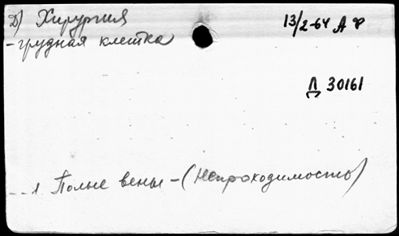 Д) Хирургия
13/2-64 А Ф
-грудная клетка
Д 30161
1 Полые вены - (Непроходимость)